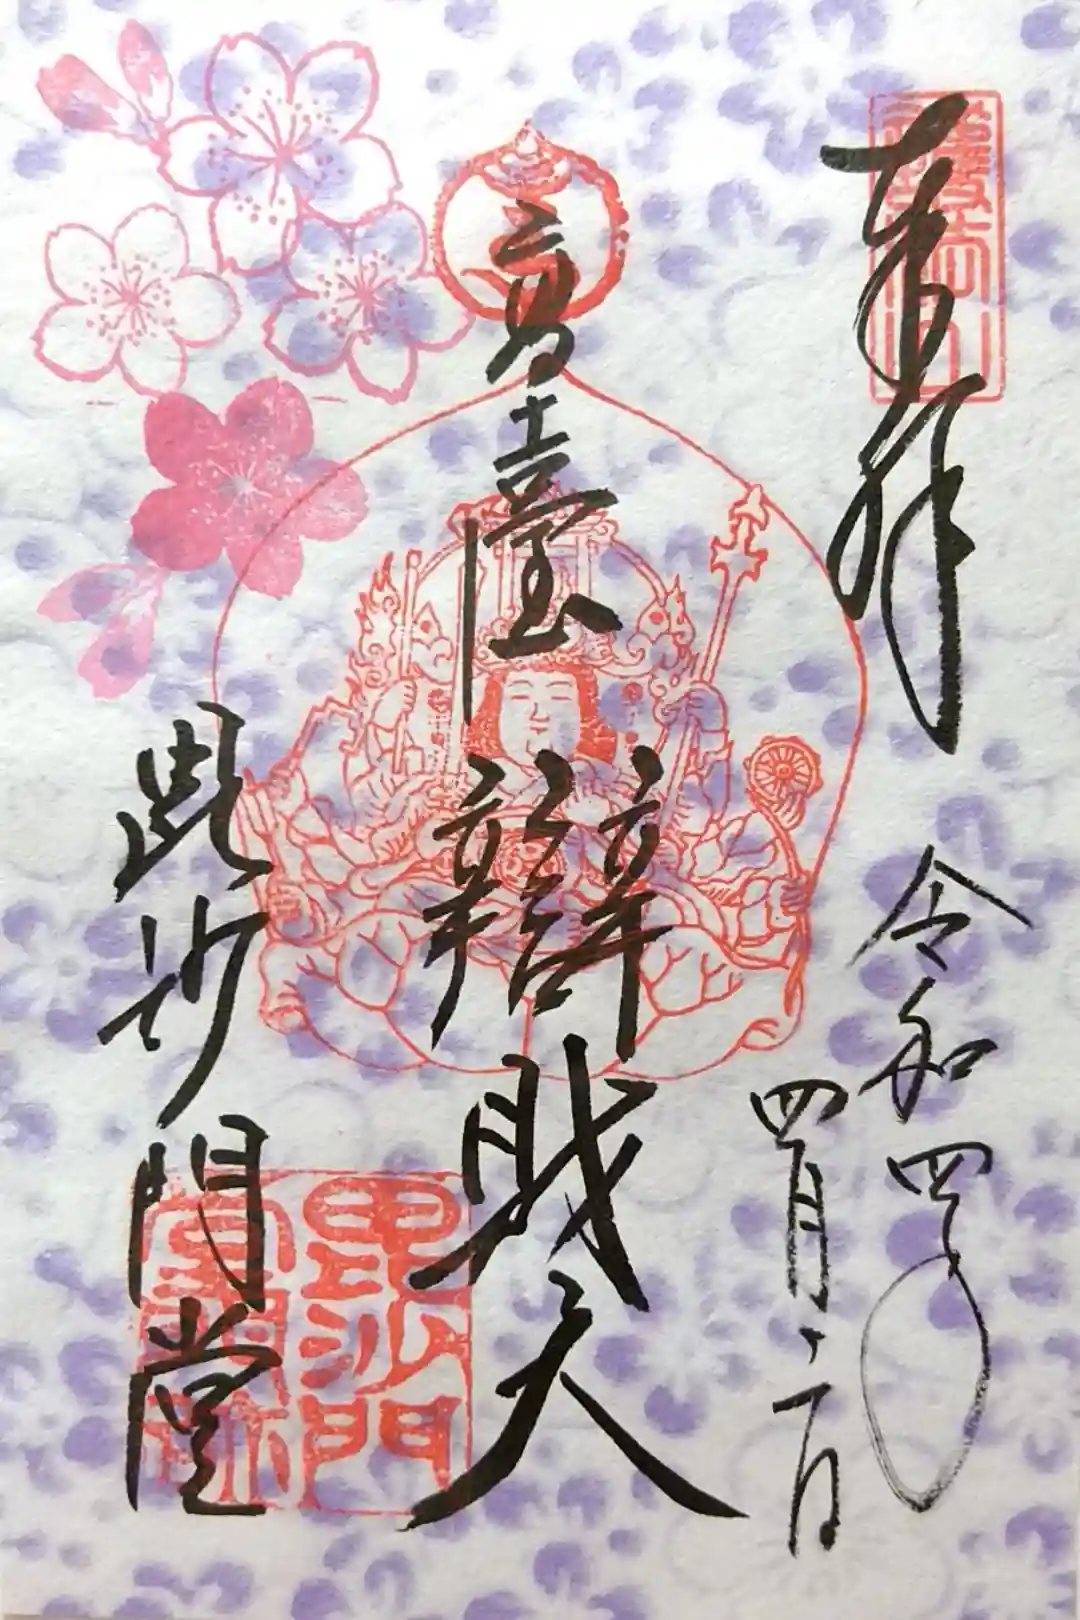 奉拝
令和四年
四月二日
高臺辯財天
毘沙門堂
毘沙門
堂門跡